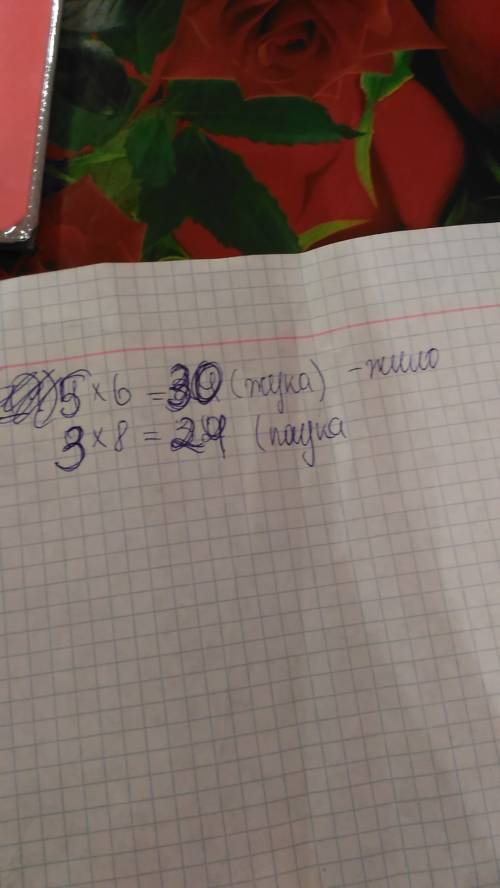 5 × 6 = 30 (жука) - жило
3 × 8 = 24 (паука